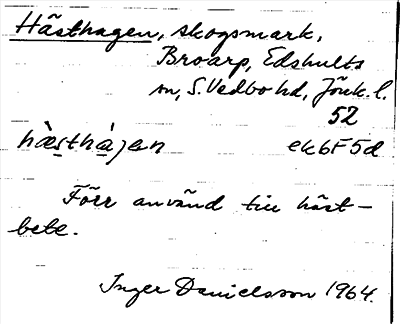 Hästhagen, skogsmark,
Broarp, Edshults
sn, S. Vedbo hd, Jönk. l.
52
hæ̀sthàjen ek6F5d
Förr använd till häst-
bete.
Inger Danielsson 1964.